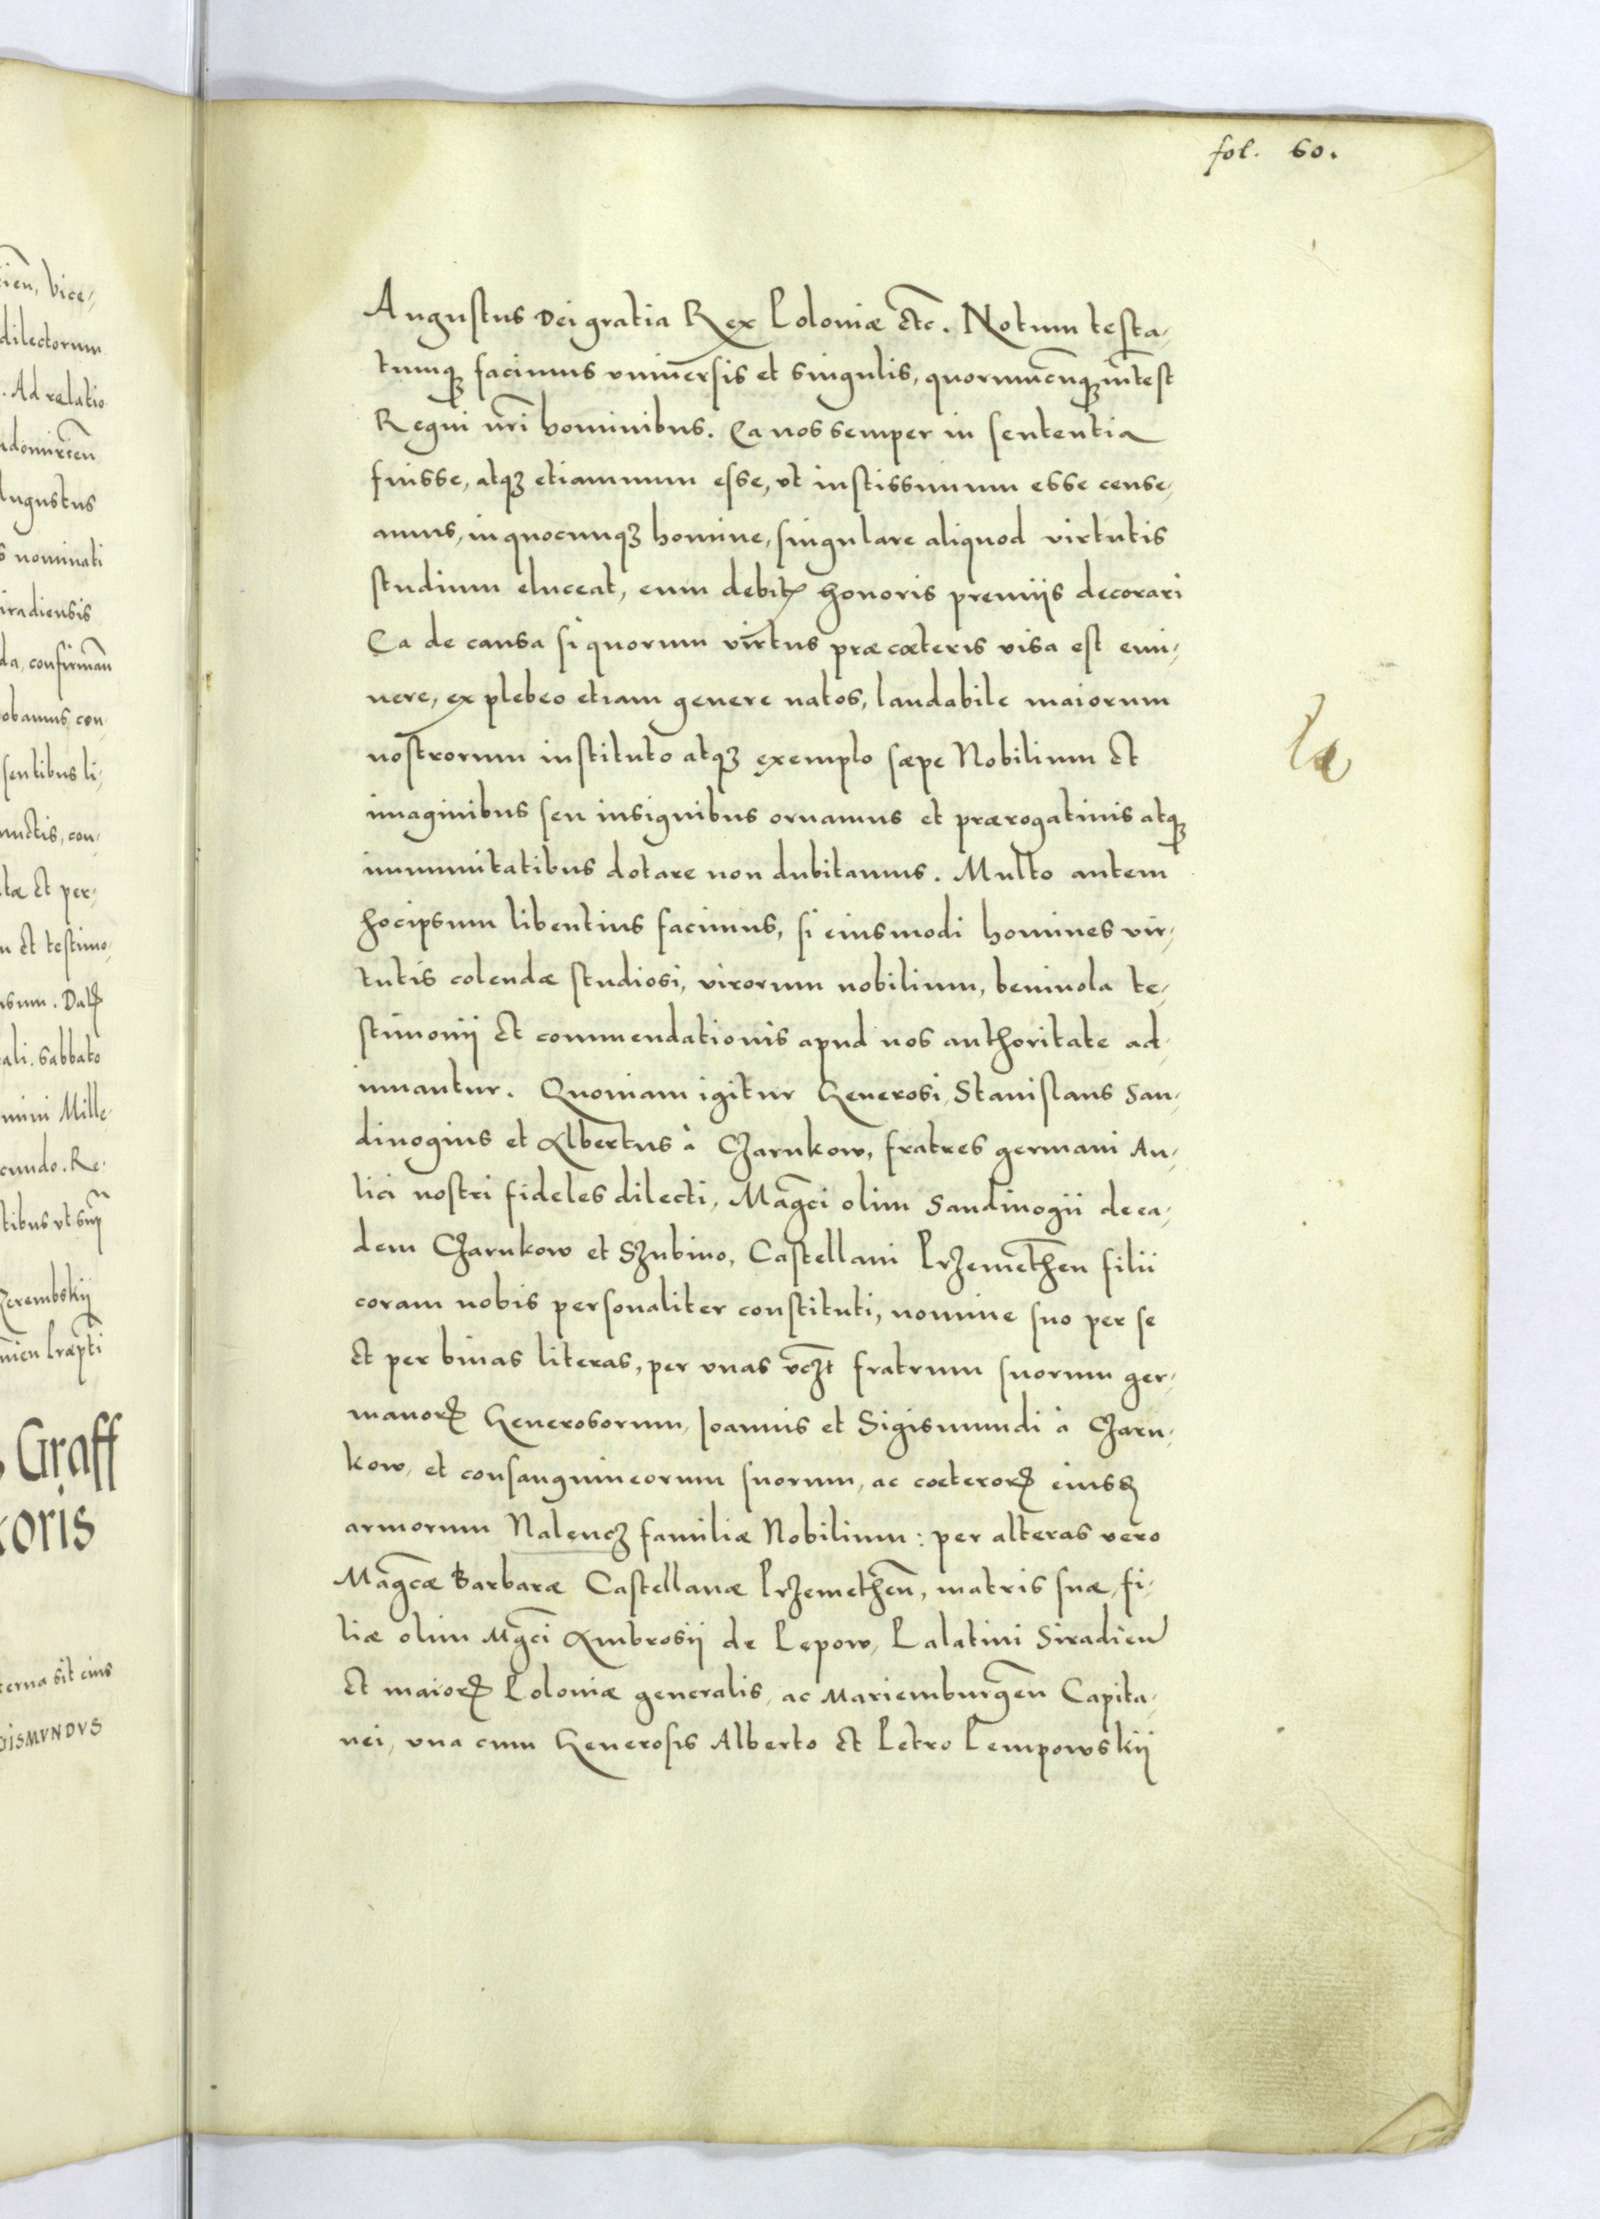 fol. 60.
Augustus Dei gratia Rex Poloniæ etc. Notum testa-
tumq₃ facimus vniuersis et singulis, quorumcunq₃ intest
Regni nri hominibus. Ea nos semper in sententia
fuisse, atq₃ etiamnum esse, vt iustissimum esse cense-
amus, in quocunq₃ homine, singulare aliquod virtutis
studium eluceat, eum debitꝭ honoris premijs decorari
Ea de causa si quorum virtus præ cæteris visa est emi-
nere, ex plebeo etiam genere natos, laudabile maiorum
nostrorum instituto atq₃ exemplo sæpe Nobilium et
imaginibus seu insignibus ornamus et prærogatiuis atq₃
immunitatibus dotare non dubitamus. Multo autem
hocipsum libentius facimus, si eiusmodi homines vir-
tutis colendæ studiosi, virorum nobilium, beniuola te-
stimonij et commendationis apud nos authoritate ad-
iuuantur. Quoniam igitur Generosi, Stanislaus San-
diuogius et Albertus à Czarnkow, fratres germani Au-
lici nostri fideles dilecti, Magci olim Sandiuogii de ea-
dem Czarnkow et Szubino, Castellani Przemethen filii
coram nobis personaliter constituti, nomine suo per se
et per binas literas, per vnas vczt fratrum suorum ger-
manorꝝ Generosorum, Joannis et Sigismundi à Czarn-
kow, et consanguineorum suorum, ac cæterorꝝ eiusd
armorum Nalencz familiæ Nobilium: per alteras vero
Magcæ Barbaræ Castellanæ Przemethen, matris suæ, fi-
liæ olim Mgci Ambrosij de Pepow, Palatini Siradien
et maiorꝝ Poloniæ generalis, ac Mariemburgen Capita-
nei, vna cum Generosis Alberto et Petro Pempowskij